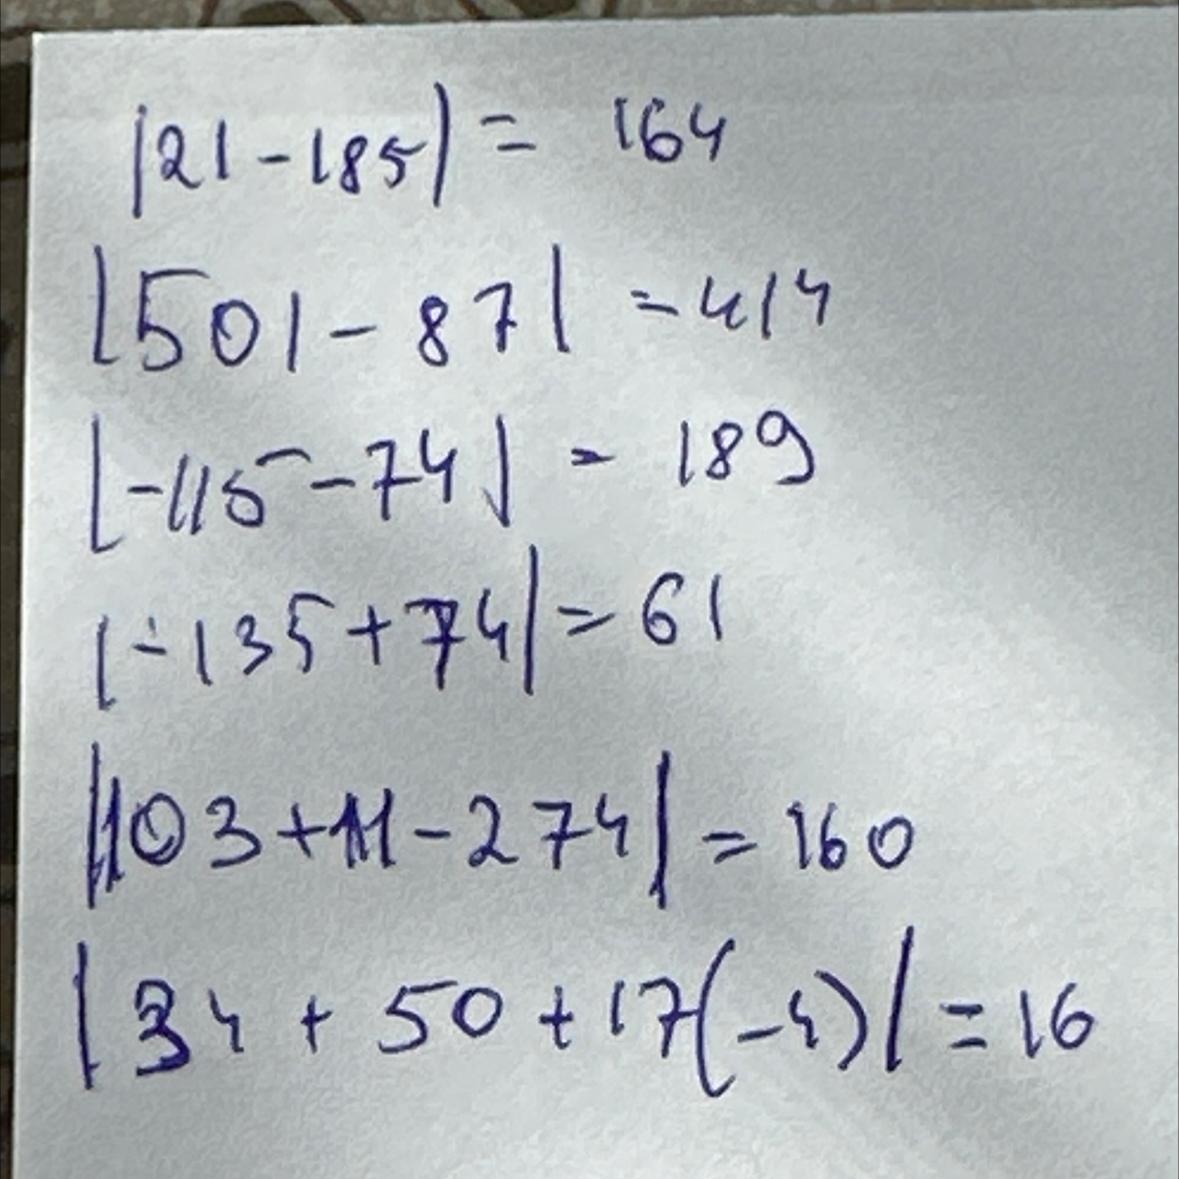 |21-185| = 164
|501-87| = 414
|-115-74| = 189
|-135+74| = 61
|103+11-274| = 160
|34+50+17(-4)| = 16